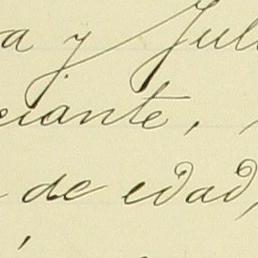 a y Juli
ciante,
de edad,